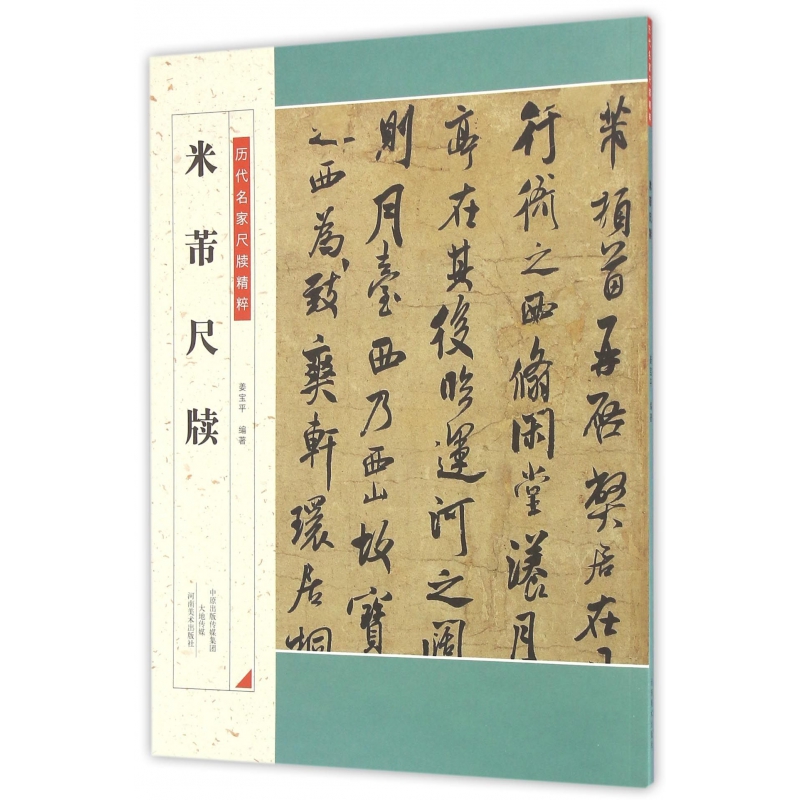 米芾尺牍
历代名家尺牍精粹
姜宝平 编著
中原出版传媒集团
大地传媒
河南美术出版社
芾顿首再启弊居在丹
行衙之西翛闲堂漾月
亭在其後临运河之阔
则月臺西乃西山故寶
之西为致爽轩環居桐